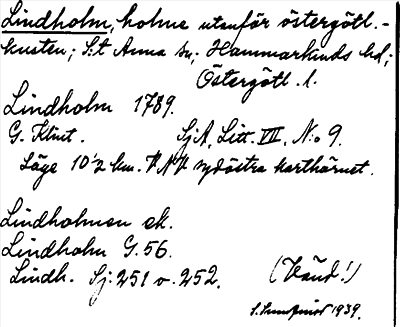 Lindholm, holme utanför östergötl.-
kusten; S:t Anna sn; Hammarkinds hd;
Östergötl. l.
Lindholm 1789.
G. Klint. SjA, Litt. VII, N:o 9.
Läge 10 1/2 km. VNV sydöstra karthörnet.
Lindholmen ek.
Lindholm G. 56.
Lindh. Sj: 251 o. 252.
(Vänd!)
1939.